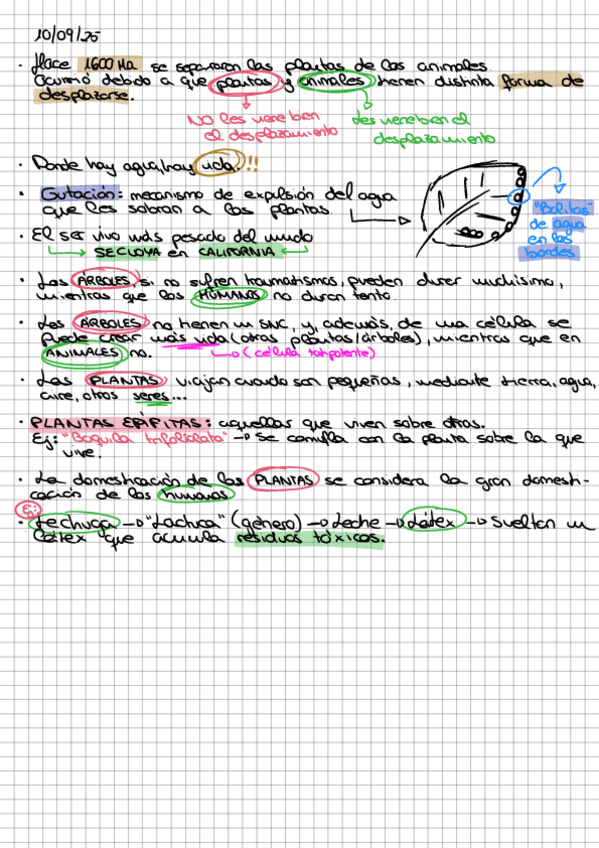 10/09/25
· Hace 1600 Ma se separaron las plantas de los animales.
Ocurrió debido a que plantas y animales tienen distinta forma de
desplazarse.
NO les viene bien
el desplazamiento
Les viene bien el
desplazamiento
· Donde hay agua, hay vida!!!
· Gutación: mecanismo de expulsión del agua
que les sobran a las plantas.
"Bolitas"
de agua
en los
bordes
· El ser vivo más pesado del mundo
SECUOYA en CALIFORNIA
· Los ÁRBOLES, si no sufren traumatismos, pueden durar muchísimo,
mientras que los HUMANOS no duran tanto.
· Los ÁRBOLES no tienen un SNC, y, además, de una célula se
puede crear más vida (otras plantas/árboles), mientras que en
ANIMALES no.
(célula totipotente)
· Las PLANTAS viajan cuando son pequeñas, mediante tierra, agua,
aire, otros seres...
· PLANTAS EPÍFITAS: aquellas que viven sobre otras.
Ej: "Boquila trifoliolata" → Se camufla con la planta sobre la que
vive.
· La domesticación de las PLANTAS se considera la gran domesti-
cación de los humanos
Ej:
· Lechuga → "Lactuca" (género) → Leche → Látex → Sueltan un
látex que acumula residuos tóxicos.